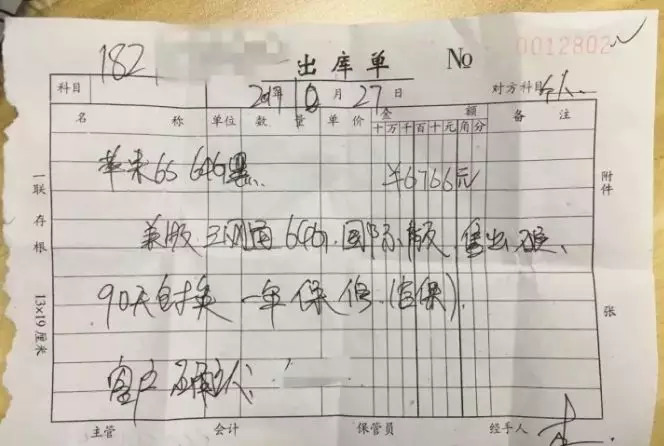 182
出库单 № 0012802
科目 年 月 27 日 对方科目
名称 单位 数量 单价 金额 备注
十 万 千 百 十 元 角 分
苹果6S 64G黑 ¥6766元
美版三网通64G 国际版 售出不退、
90天包换 一年保修(官保)
客户确认
主管 会计 保管员 经手人
一联存根 13×19厘米
附件 张